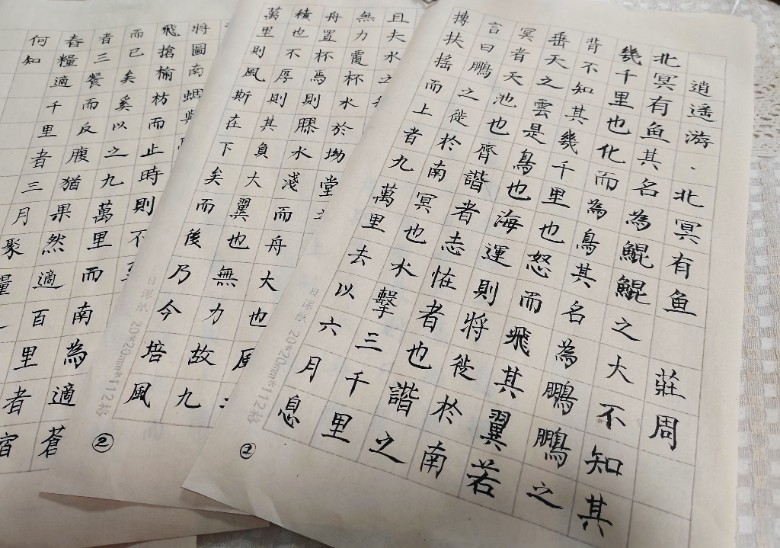 逍遙游·北冥有魚 莊周
北冥有魚其名為鯤鯤之大不知其
幾千里也化而為鳥其名為鵬鵬之
背不知其幾千里也怒而飛其翼若
垂天之雲是鳥也海運則將徙於南
冥者天池也齊諧者志怪者也諧之
言曰鵬之徙於南冥也水擊三千里
摶扶搖而上者九萬里去以六月息
日课纸 20*20mm*112格
①
且夫水之
力覆杯水於坳堂之
舟置杯焉則膠水淺而舟大也風
積也不厚則其負大翼也無力故九
萬里則風斯在下矣而後乃今培風
日课纸 20*20mm*112格
②
將圖南蜩與
飛搶榆枋而止時則不
而已矣奚以之九萬里而南為適蒼
者三餐而反腹猶果然適百里者宿
舂糧適千里者三月聚糧
何知